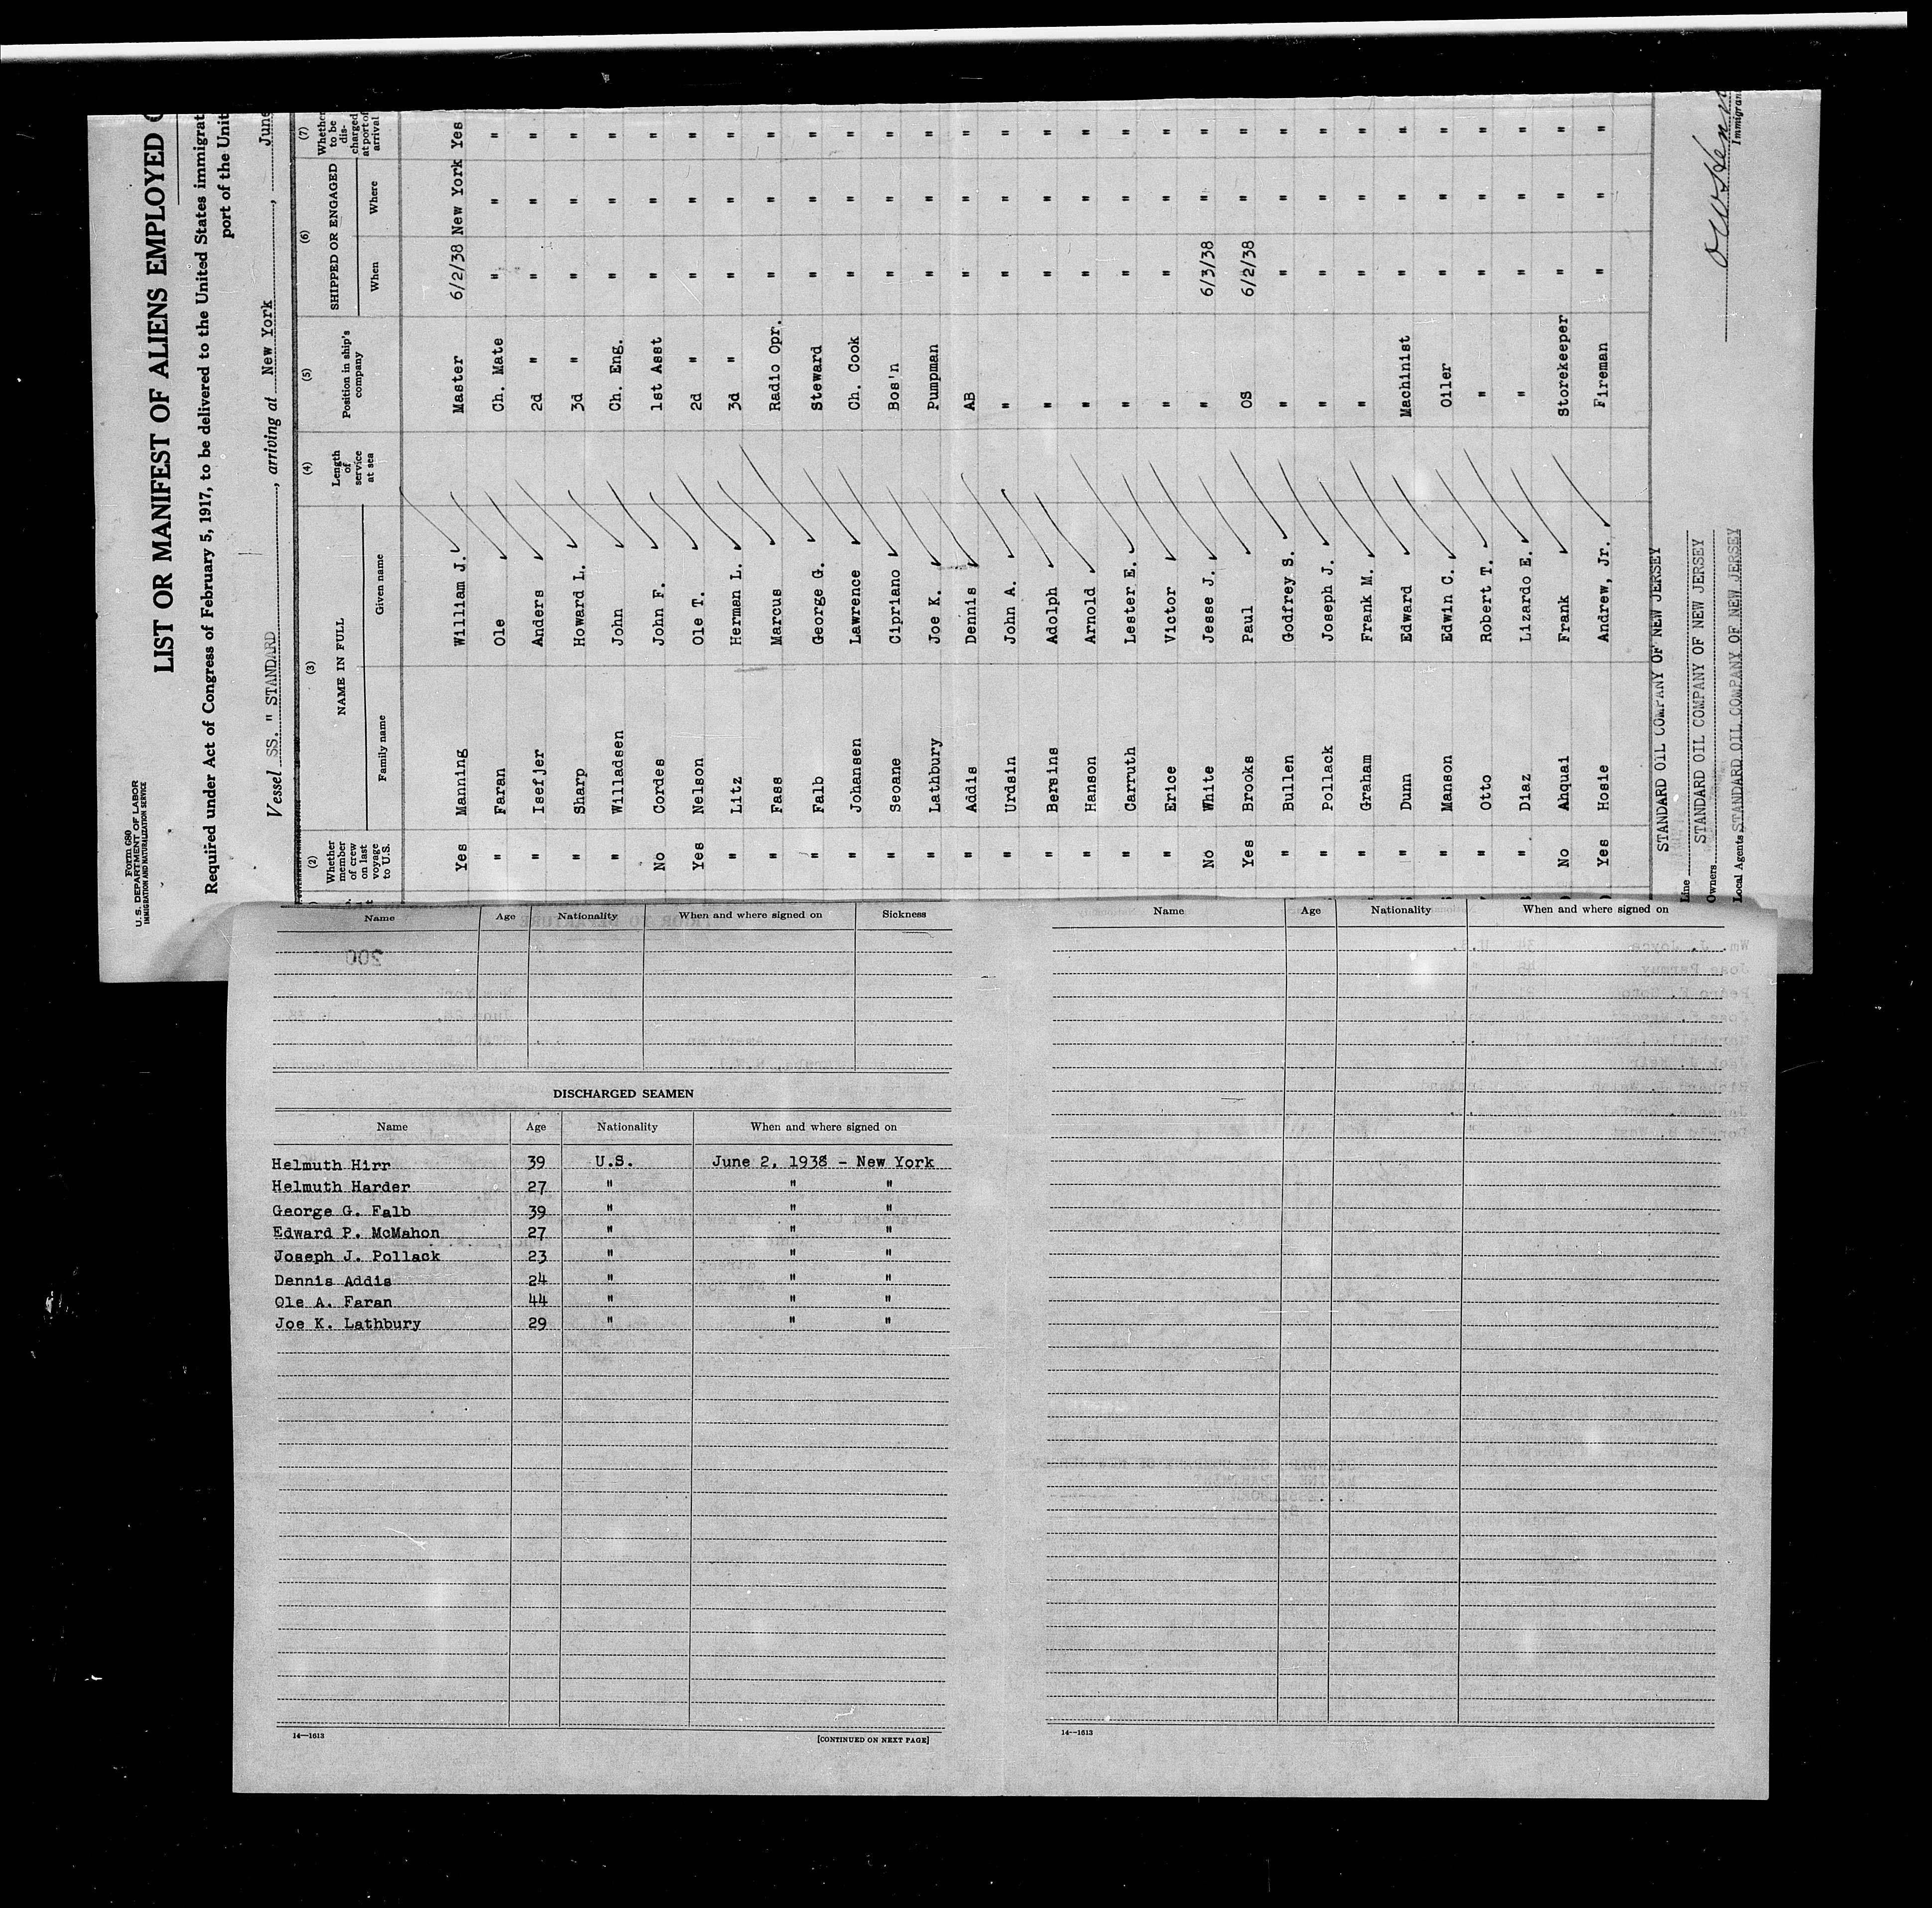 Form 680
U. S. DEPARTMENT OF LABOR
IMMIGRATION AND NATURALIZATION SERVICE
LIST OR MANIFEST OF ALIENS EMPLOYED
Required under Act of Congress of February 5, 1917, to be delivered to the United States immigrat
port of the Unit
Vessel SS. " STANDARD, arriving at New York, June
(2) Whether member of crew on last voyage to U.S. (3) NAME IN FULL Family name Given name (4) Length of service at sea (5) Position in ship's company (6) SHIPPED OR ENGAGED When Where (7) Whether to be discharged at port of arrival
Yes Manning William J. Master 6/2/38 New York Yes
" Faran Ole Ch. Mate " " "
" Isefjer Anders 2d " " " "
" Sharp Howard L. 3d " " " "
" Willadsen John Ch. Eng. " " "
No Cordes John F. 1st Asst " " "
Yes Nelson Ole T. 2d " " " "
" Litz Herman L. 3d " " " "
" Fass Marcus Radio Opr. " " "
" Falb George G. Steward " " "
" Johansen Lawrence Ch. Cook " " "
" Seoane Cipriano Bos'n " " "
" Lathbury Joe K. Pumpman " " "
" Addis Dennis AB " " "
" Urdsin John A. " " " "
" Bersins Adolph " " " "
" Hanson Arnold " " " "
" Carruth Lester E. " " " "
" Erice Victor " " " "
No White Jesse J. " 6/3/38 " "
Yes Brooks Paul OS 6/2/38 " "
" Bullen Godfrey S. " " " "
" Pollack Joseph J. " " " "
" Graham Frank M. " " " "
" Dunn Edward Machinist " " "
" Manson Edwin C. Oiler " " "
" Otto Robert T. " " " "
" Diaz Lizardo E. " " " "
No Ahquai Frank Storekeeper " " "
Yes Hosie Andrew, Jr. Fireman " " "
Line STANDARD OIL COMPANY OF NEW JERSEY
Owners STANDARD OIL COMPANY OF NEW JERSEY
Local Agents STANDARD OIL COMPANY OF NEW JERSEY
Immigran
Name Age Nationality When and where signed on Sickness
DISCHARGED SEAMEN
Name Age Nationality When and where signed on
Helmuth Hirr 39 U.S. June 2, 1938 - New York
Helmuth Harder 27 " " "
George G. Falb 39 " " "
Edward P. McMahon 27 " " "
Joseph J. Pollack 23 " " "
Dennis Addis 24 " " "
Ole A. Faran 44 " " "
Joe K. Lathbury 29 " " "
14—1613
[CONTINUED ON NEXT PAGE]
Name Age Nationality When and where signed on
14—1613